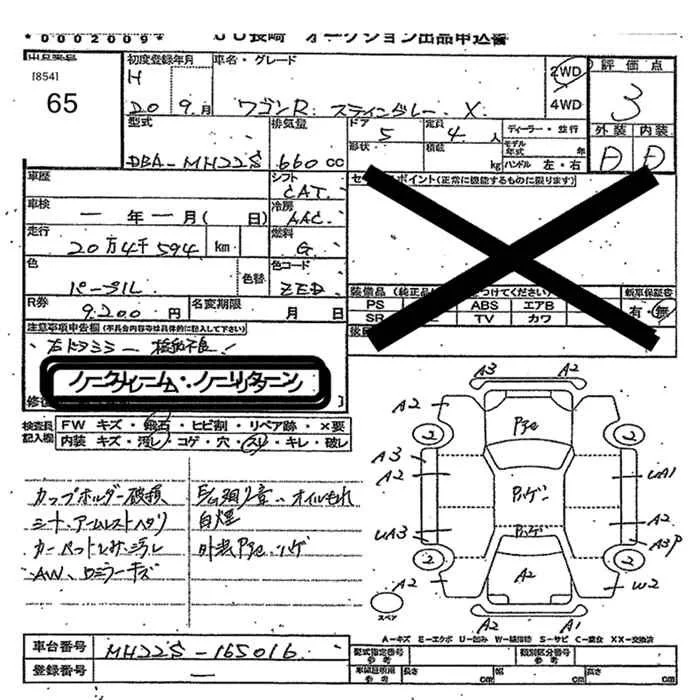 *0002009* JU長崎 オークション出品申込書
[854]
65
初度登録年月
H 20年 9月
車名・グレード
ワゴンR スティングレー X
2WD
4WD
評価点
3
外装 内装
D D
型式
DBA-MH22S
排気量
660cc
ドア 5
定員 4人
形状
積載 kg
ディーラー・並行
モデル年式 年
ハンドル 左・右
車歴
シフト
CAT
車検
一年一月( 日)
冷房
AAC
走行
20万4千594 km
燃料
G
色
パープル
色替
色コード
ZED
R券
9,200円
名変期限
月 日
ポイント(正常に機能するものに限ります)
装備品
PS
ABS
エアB
SR
TV
カワ
新車保証書
有・無
注意事項申告欄(不具合内容等は具体的に記入して下さい)
右ドアミラー 格納不良
ノークレーム・ノーリターン
検査員記入欄
FW キズ・飛石・ヒビ割・リペア跡・×要
内装 キズ・汚レ・コゲ・穴・スリ・キレ・破レ
カップホルダー破損
シート、アームレストヘタリ
AW、ロミラーキズ
オイルもれ
白煙
A3 A2
A2
2 2
A3
A2
UA1
A2
UA3
A3P
2 2
A2
A2
W2
A2 A1
スペア
A-キズ E-エクボ U-凹み W-補修跡 S-サビ C-腐食 XX-交換済
車台番号
MH22S-165016
登録番号
一
型式指定番号 参考
類別区分番号 参考
車庫証明用 参考
長さ cm
幅 cm
高さ cm